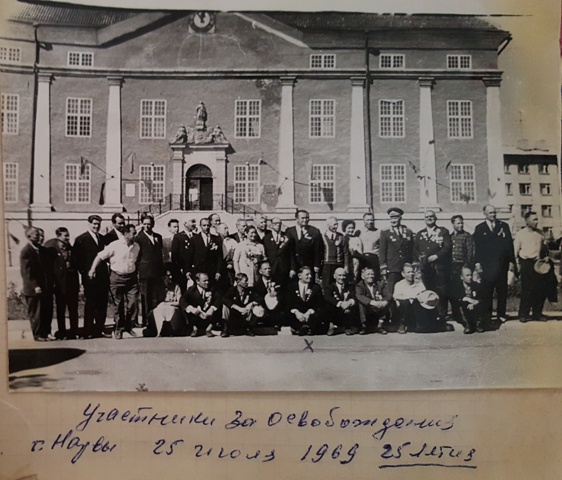 Участники за освобождения
г. Нарвы 25 июля 1969 25 летия